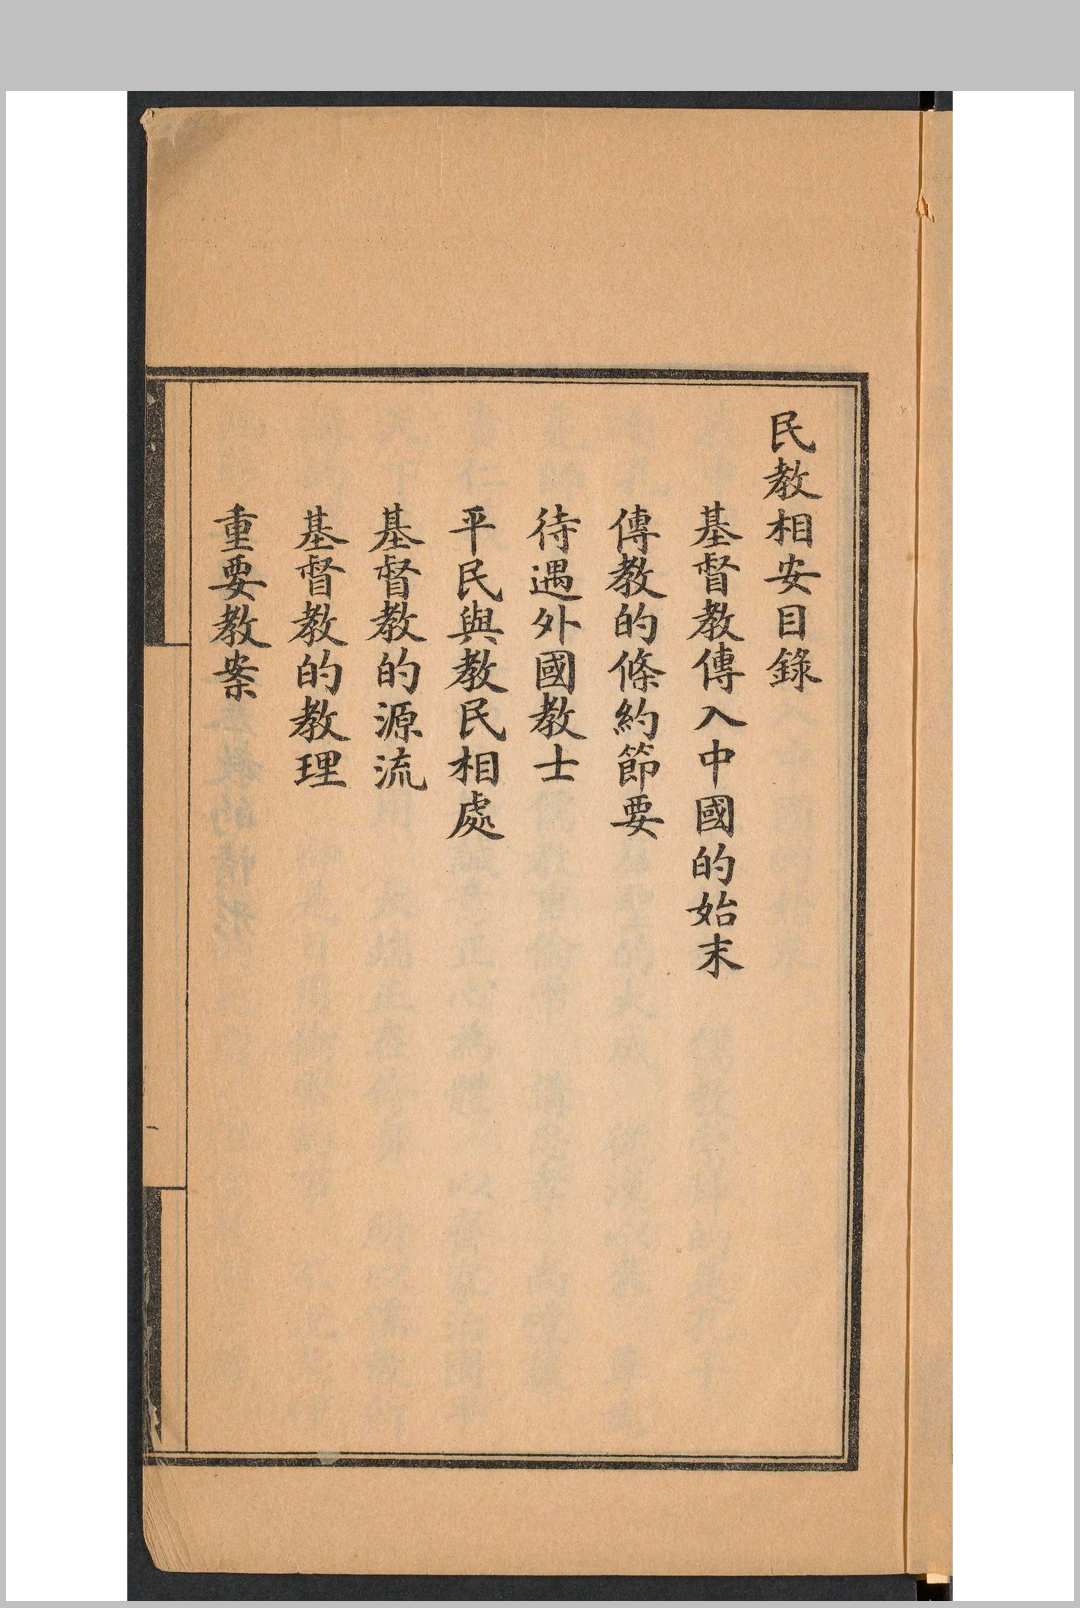 民教相安目錄
基督教傳入中國的始末
傳教的條約節要
待遇外國教士
平民與教民相處
基督教的源流
基督教的教理
重要教案